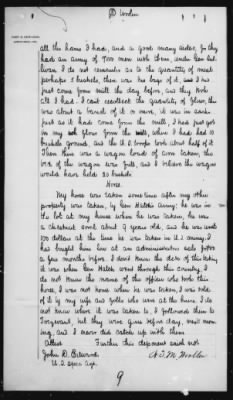 all the hams I had, and a good many sides, for they
had an army of 7000 men with them, under Gen
I do not remember as to the quantity of meat
perhaps 2 bushels, there was two bags of it, and I had
just come from mill the day before, and they took
all I had. I can't recollect the quantity of flour, there
was about a barrel of it or more, it was in sacks
just as it had come from the mill, I had just got
in my flour from the mill, when I had had 10
bushels ground, and the U.S. troops took about half of it
Then there was a wagon load of corn taken, the
bed of the wagon was full, and I believe the wagon
would have held 30 bushels
Horse.
My horse was taken sometime after my other
property was taken, by Gen Hatch's Army; he was in
the lot at my house when he was taken, he was
a chestnut sorrel about 9 years old, and he was worth
100 dollars at the time he was taken in U.S. money. I
had bought him at an administrators sale just
a few months before. I don't know the date of this taking
it was when Gen Hatch went through this country. I
do not know the name of the officer who took this
horse, I was not home when he was taken, I was told
of it by my wife and folks who were at the house. I do
not know where it was taken to, I followed them to
but they were gone before day, next morn
ing, and I never did catch up with them.
Further this deponent saith not
Attest
John D. Edwards
U.S. Spec. Agt.
9